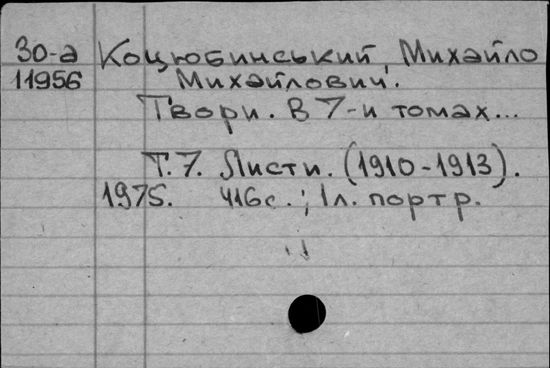 30-а Коцюбинський, Михайло
11956 Михайлович.
Твори. В 7-и томах...
Т. 7. Листи. (1910-1913).
1975. 416с.; 1л. портр.